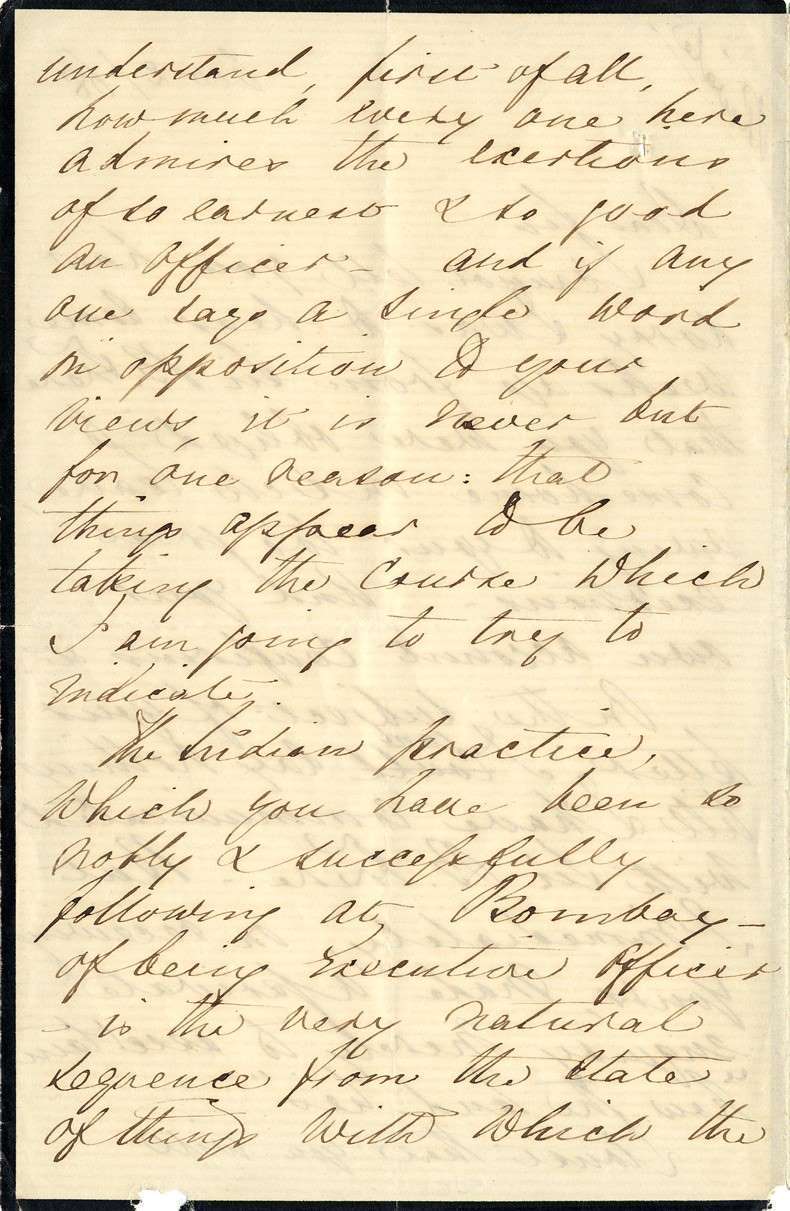 understand, first of all,
how much every one here
admires the exertions
of so earnest & so good
an officer - and if any
one says a single word
in opposition to your
views, it is never but
for one reason: that
things appear to be
taking the course which
I am going to try to
indicate.
The Indian practice,
which you have been so
nobly & successfully
following at Bombay -
of being Executive Officer
- is the very natural
sequence from the state
of things with which the